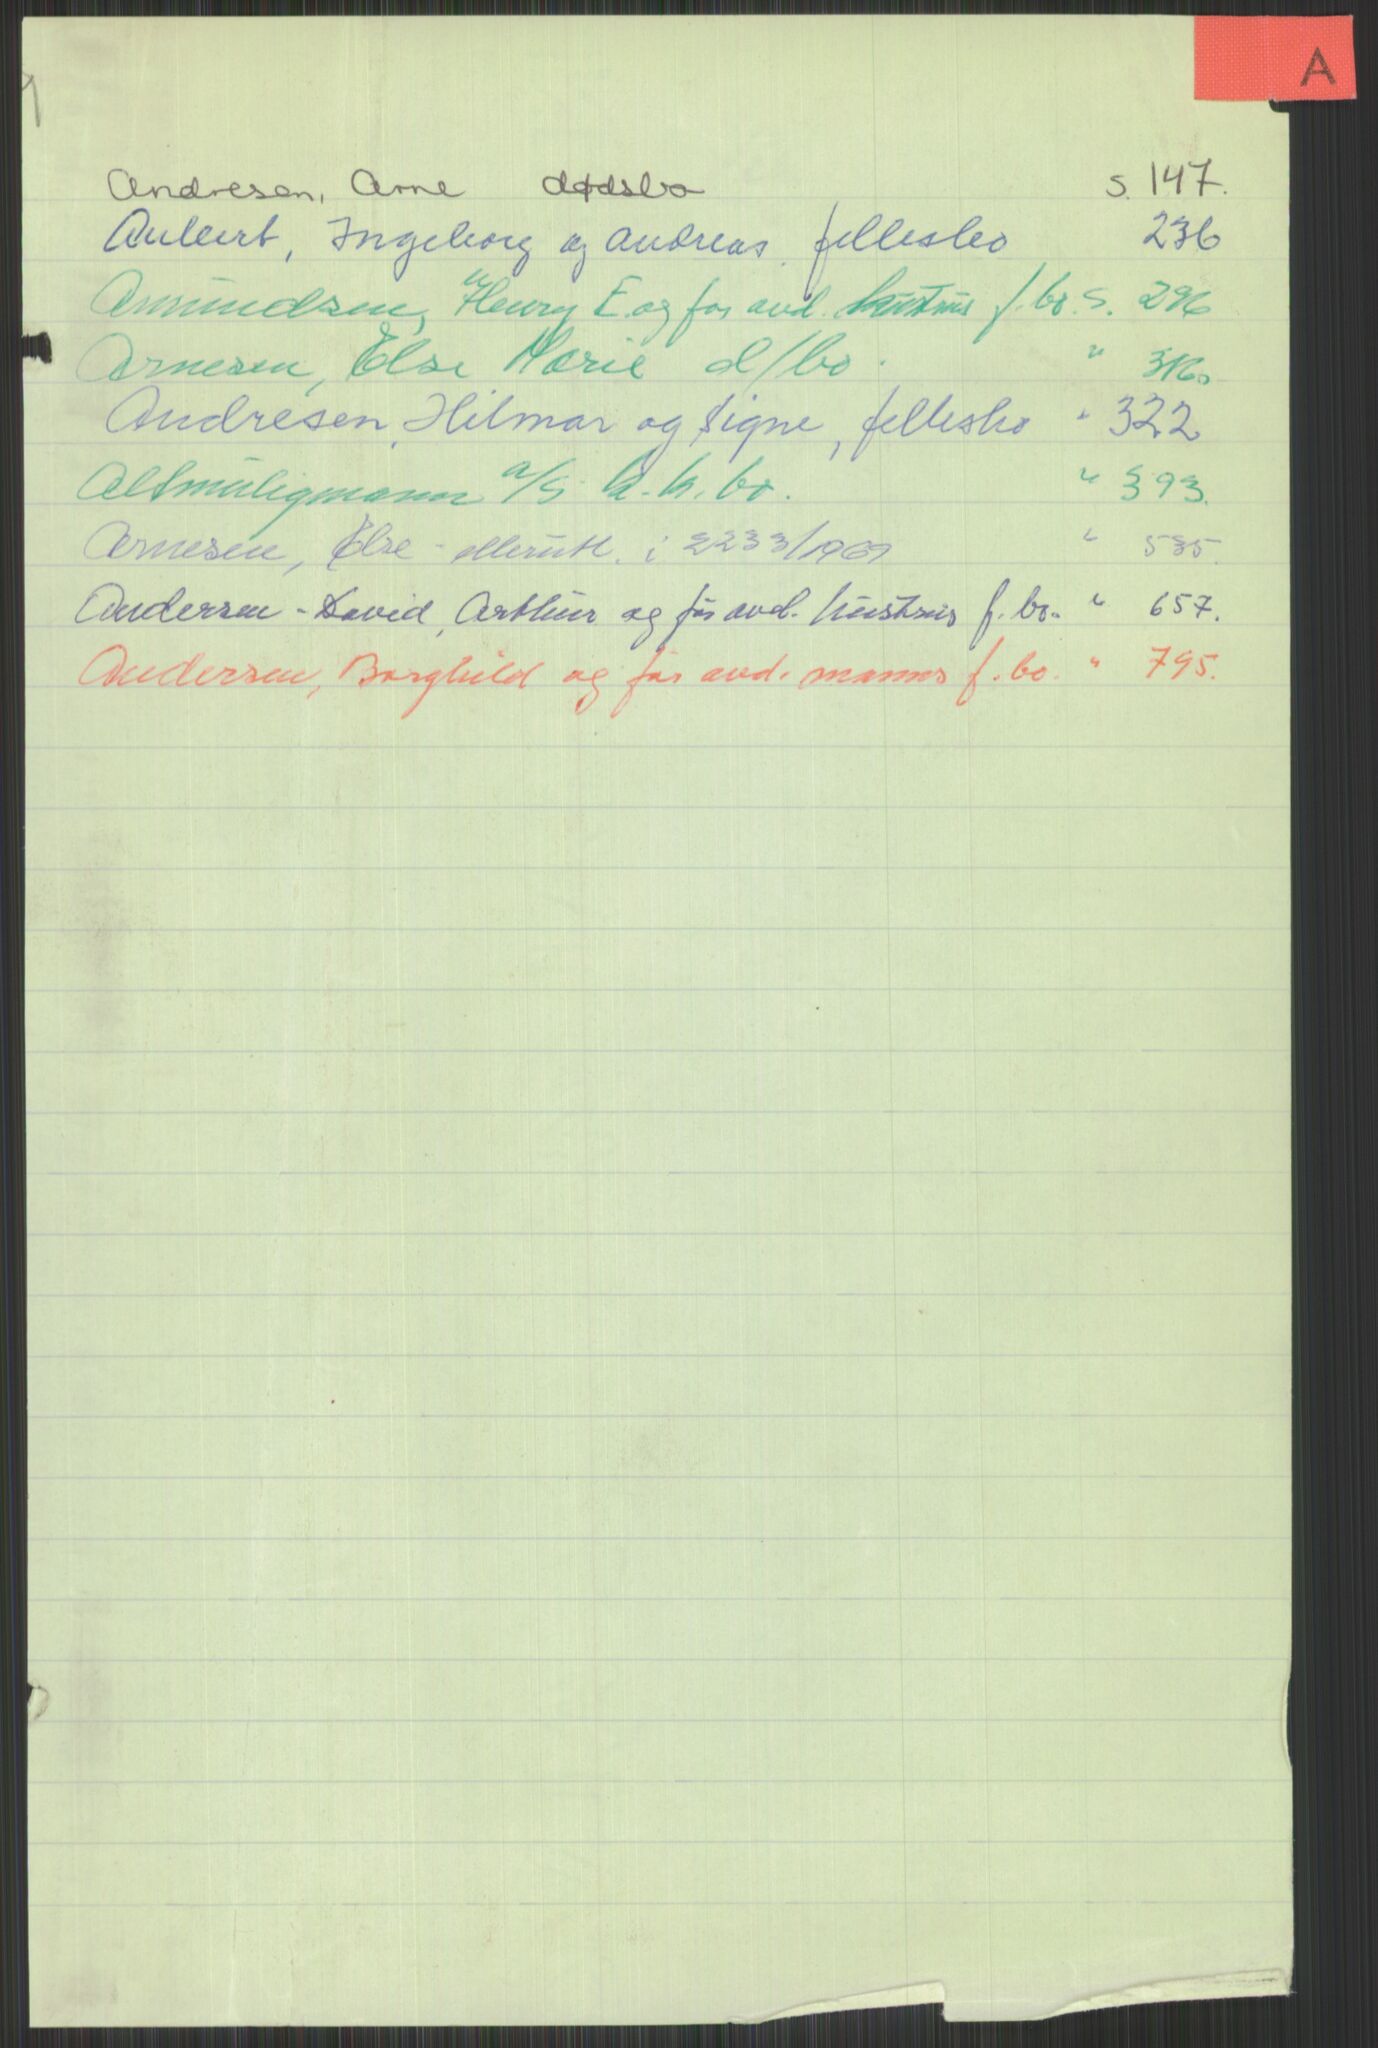 A
Andresen, Arne dødsbo s. 147.
Aubert, Ingeborg og Andreas, fellesbo 236
Amundsen, Henry E og før avd. hustrus f.bo. s. 296
Arnesen, Else Marie d/bo. " 316.
Andresen, Hilmar og Signe, fellesbo " 322
Altmuligmann a/s k.k. bo. " 393.
Arnesen, Else - etterutl. i 2233/1969 " 535.
Andersen - David, Arthur og før avd. hustrus f. bo. " 657.
Andersen, Borghild og før avd. manns f. bo. " 795.